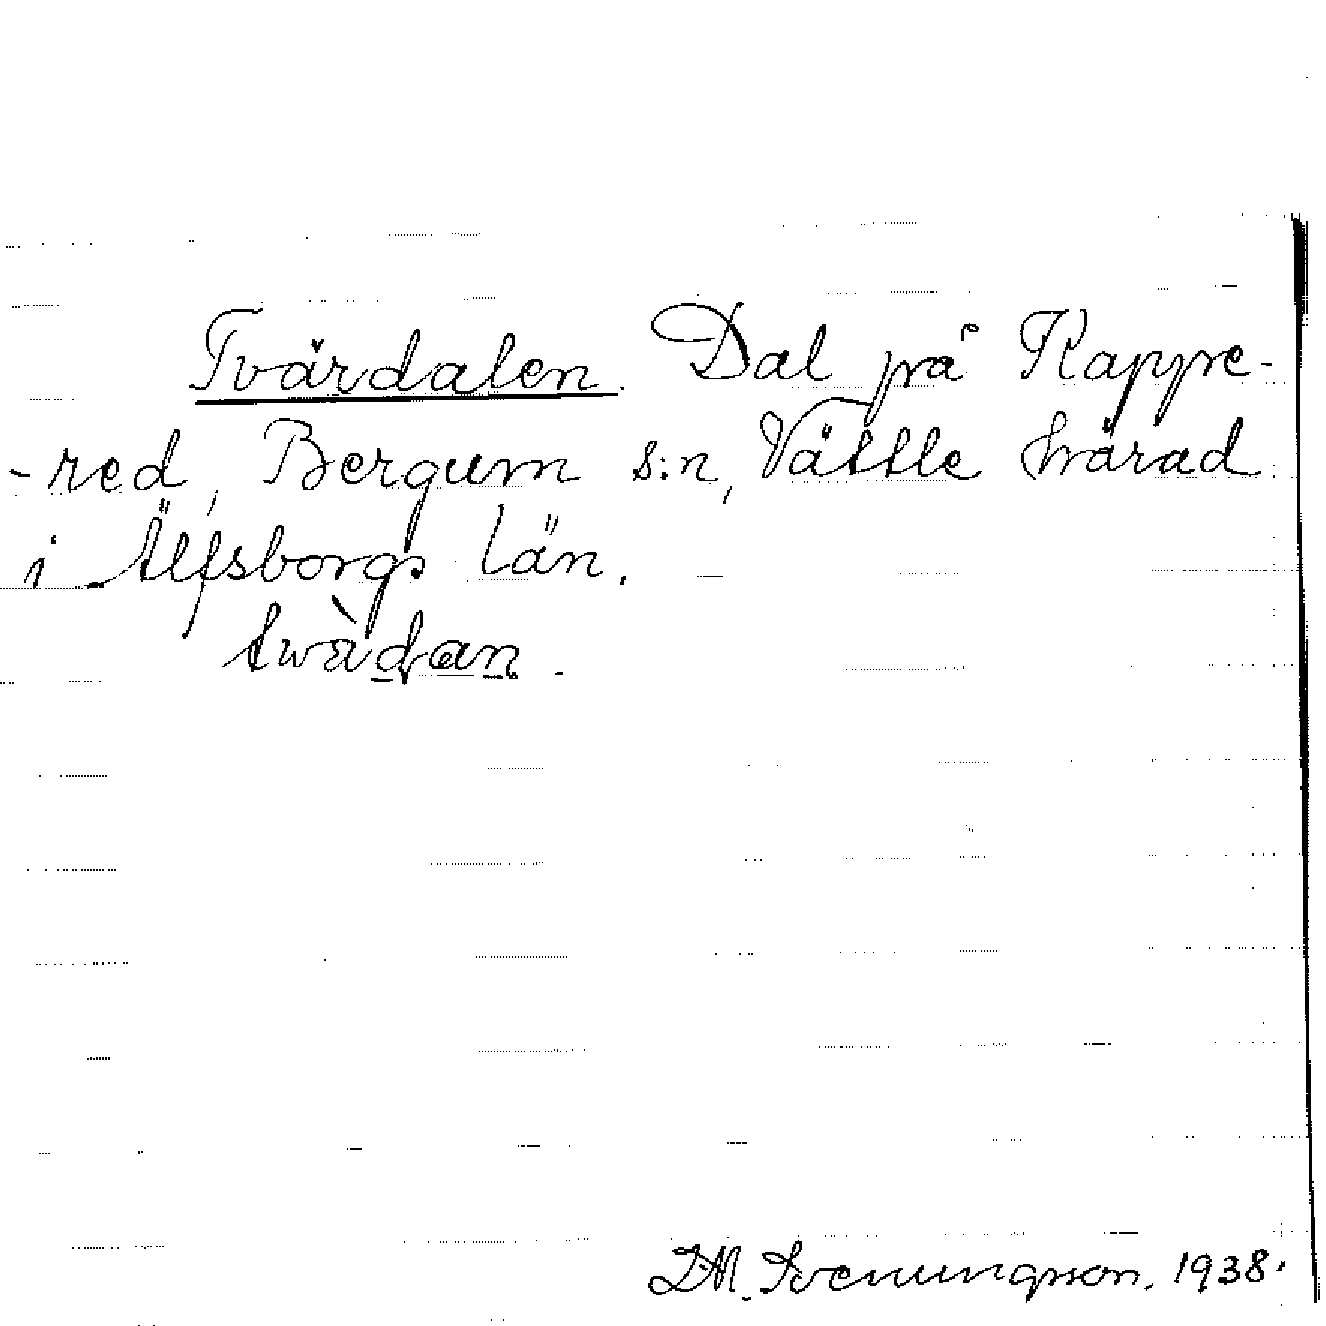 Tvärdalen. Dal på Kappe-
-red, Bergum s:n, Vättle härad
i Älfsborgs län.
J.M. Svenungsson. 1938.